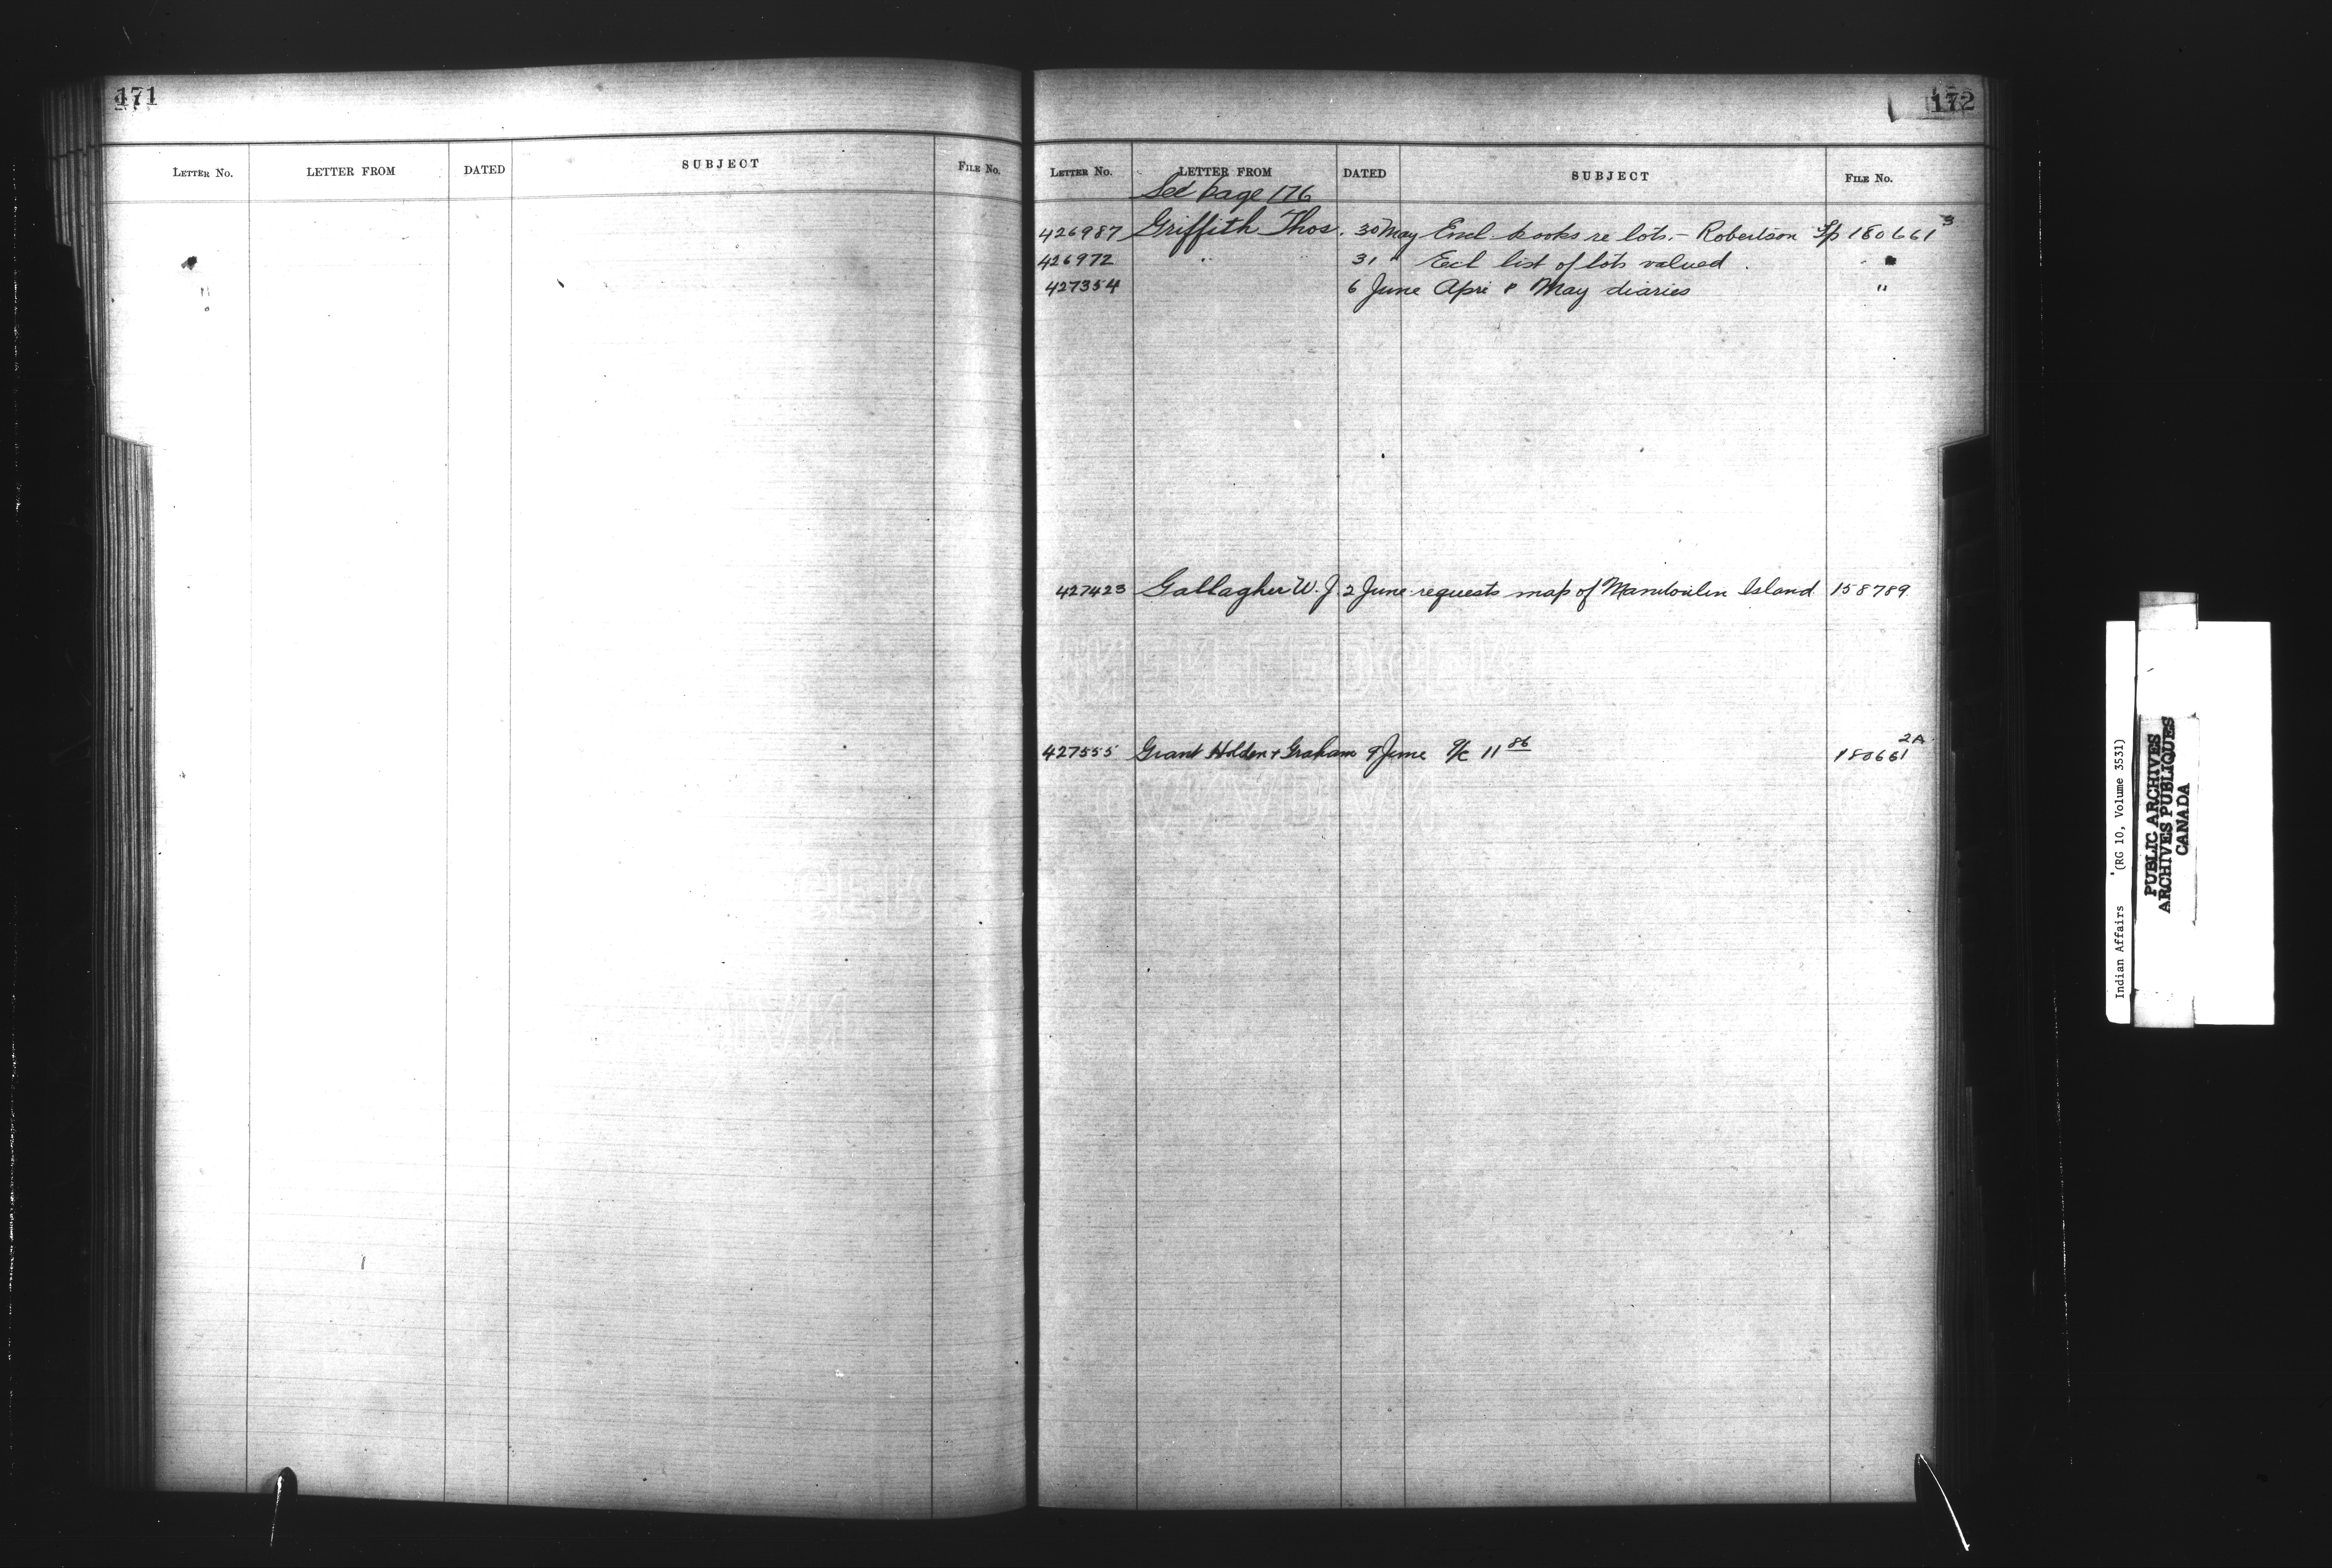 171
LETTER No. LETTER FROM DATED SUBJECT FILE No.
172
LETTER No. LETTER FROM DATED SUBJECT FILE No.
See page 176
426987 Griffith Thos. 30 May Encl books re lots. - Robertson Tp 180661 3
426972 " 31 " Ecl list of lots valued . "
427354 6 June Apri & May diaries "
427423 Gallagher W. J. 2 June requests map of Manitoulin Island 158789
427555 Grant Holden & Graham 9 June a/c 11 86 180661 2A
Indian Affairs (RG 10, Volume 3531)
PUBLIC ARCHIVES
ARCHIVES PUBLIQUES
CANADA